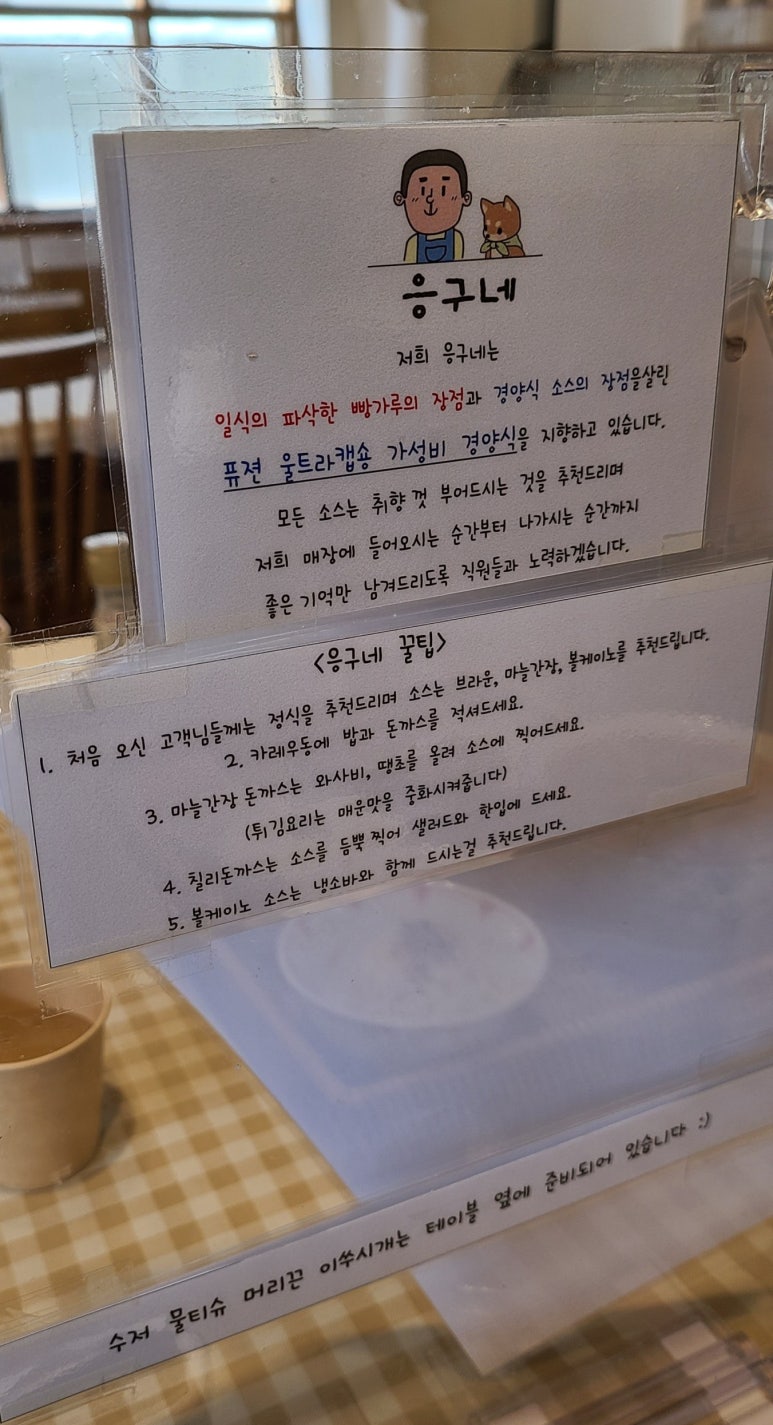 응구네
저희 응구네는
일식의 파삭한 빵가루의 장점과 경양식 소스의 장점을살린
퓨전 울트라캡숑 가성비 경양식을 지향하고 있습니다.
모든 소스는 취향 껏 부어드시는 것을 추천드리며
저희 매장에 들어오시는 순간부터 나가시는 순간까지
좋은 기억만 남겨드리도록 직원들과 노력하겠습니다.
<응구네 꿀팁>
1. 처음 오신 고객님들께는 정식을 추천드리며 소스는 브라운, 마늘간장, 볼케이노를 추천드립니다.
2. 카레우동에 밥과 돈까스를 적셔드세요.
3. 마늘간장 돈까스는 와사비, 땡초를 올려 소스에 찍어드세요.
(튀김요리는 매운맛을 중화시켜줍니다)
4. 칠리돈까스는 소스를 듬뿍 찍어 샐러드와 한입에 드세요.
5. 볼케이노 소스는 냉소바와 함께 드시는걸 추천드립니다.
수저 물티슈 머리끈 이쑤시개는 테이블 옆에 준비되어 있습니다 :)